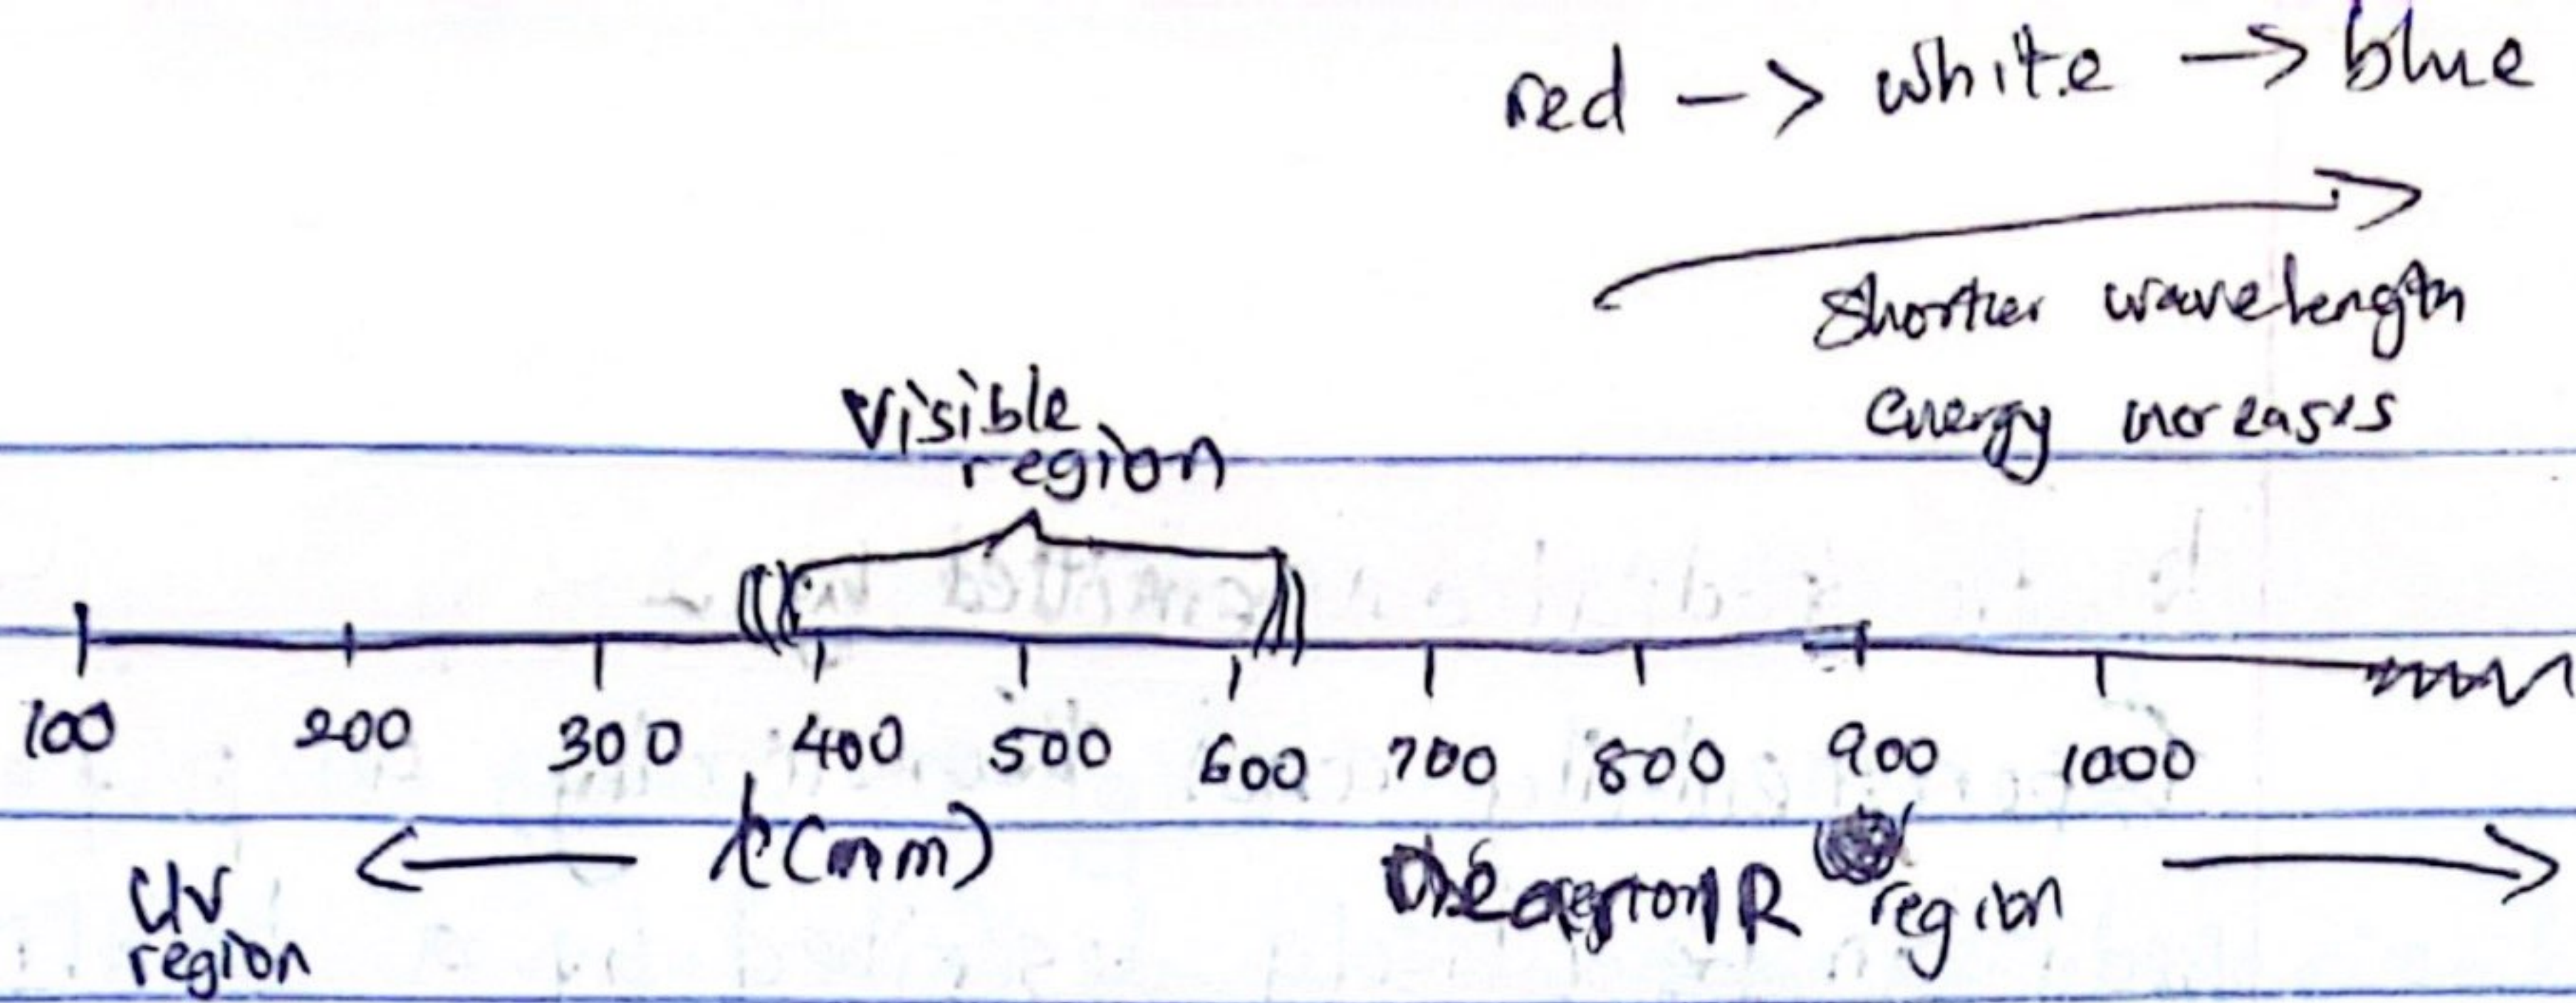 red -> white -> blue
Shorter wavelength
energy increases
Visible
region
100 200 300 400 500 600 700 800 900 1000
(nm)
UV
region
IR region